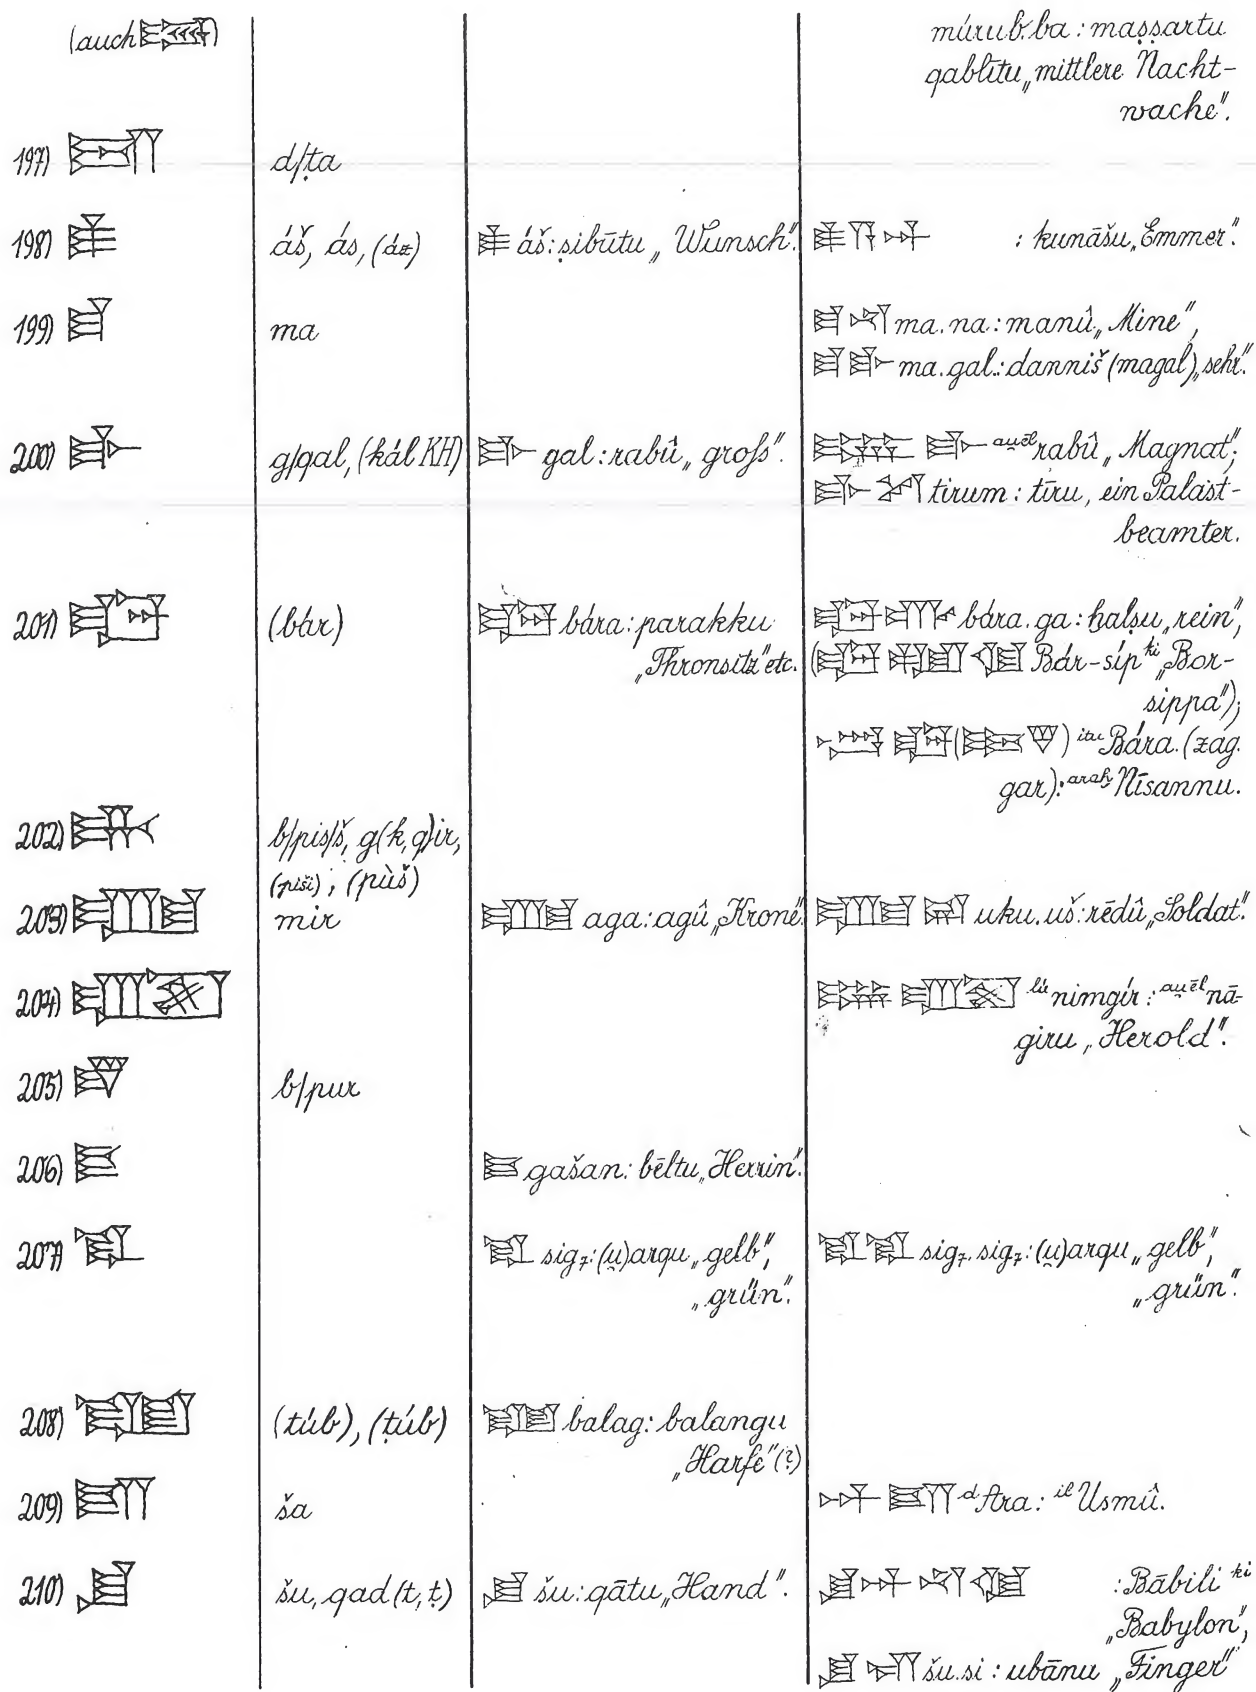 (auch 𒌘) múrub.ba : maṣṣartu
qablītu „mittlere Nacht-
wache“.
197) 𒁕 d/ṭa
198) 𒀾 áš, ás, (áz) 𒀾 áš: ṣibūtu „Wunsch“. 𒀾𒀀𒀭 : kunāšu „Emmer“.
199) 𒈠 ma 𒈠𒈾 ma.na : manû „Mine“,
𒈠𒃲 ma.gal.: danniš (magal) „sehr“.
200) 𒃲 g/qal, (kál KH) 𒃲 gal : rabû „groß“. 𒇽 𒃲 ᵃᵘ̯ᵉ̄ˡrabû „Magnat“;
𒃲𒋼 tirum : tīru, ein Palast-
beamter.
201) 𒁈 (bár) 𒁈 bára : parakku 𒁈𒂵 bára.ga : ḫalṣu „rein“,
„Thronsitz“ etc. (𒁈𒍣𒅁𒆠 Bár-síp ᵏⁱ „Bor-
sippa“);
𒌚 𒁈(𒍠𒃻) ⁱᵗᵘBára.(zag.
gar): ᵃʳᵃḫNīsannu.
202) 𒄫 b/pis/š, g(k,q)ir,
(piši), (pùš)
203) 𒂆 mir 𒂆 aga: agû „Krone“. 𒂆𒍑 uku.uš: rēdû „Soldat“.
204) 𒉪 𒇽 𒉪 ˡúnimgír : ᵃᵘ̯ᵉ̄ˡnā-
giru „Herold“.
205) 𒁓 b/pur
206) 𒃽 𒃽 gašan: bēltu „Herrin“.
207) 𒅊 𒅊 sig₇: (u̯)arqu „gelb“, 𒅊𒅊 sig₇.sig₇: (u̯)arqu „gelb“,
„grün“. „grün“.
208) 𒁾 (túb), (ṭúb) 𒁾 balag: balangu
„Harfe“ (?)
209) 𒊭 ša 𒀭𒊭 ᵈAra: ⁱˡUsmû.
210) 𒋗 šu, qad (t,ṭ) 𒋗 šu: qātu „Hand“. 𒋗𒀭𒈾𒆠 : Bābili ᵏⁱ
„Babylon“,
𒋗𒋛 šu.si : ubānu „Finger“